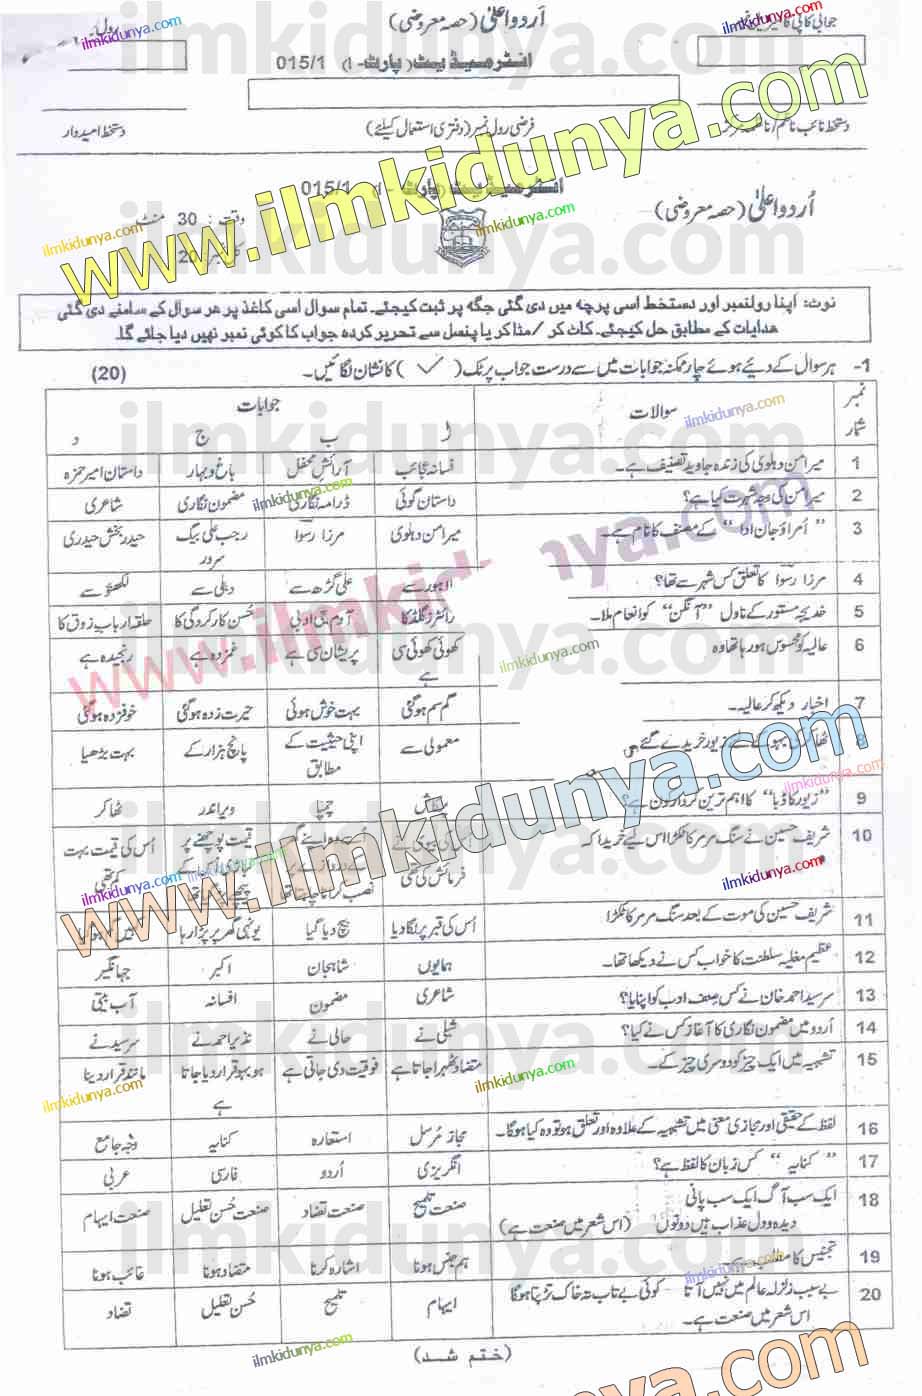 اُردو اعلیٰ (حصہ معروضی)
انٹرمیڈیٹ (پارٹ - I) 015/1
رول
دستخط نائب ناظم/ناظمہ مرکز
فرضی رول نمبر (دفتری استعمال کیلئے)
دستخط امیدوار
انٹرمیڈیٹ (پارٹ - I) 015/1
اُردو اعلیٰ (حصہ معروضی)
وقت : 30 منٹ
20
نوٹ: اپنا رولنمبر اور دستخط اسی پرچہ میں دی گئی جگہ پر ثبت کیجئے۔ تمام سوال اسی کاغذ پر ہر سوال کے سامنے دی گئی
ہدایات کے مطابق حل کیجئے۔ کاٹ کر / مٹا کر یا پنسل سے تحریر کردہ جواب کا کوئی نمبر نہیں دیا جائے گا۔
1- ہر سوال کے دیئے ہوئے چار ممکنہ جوابات میں سے درست جواب پر ٹک ( ✓ ) کا نشان لگائیں۔ (20)
نمبر شمار سوالات جوابات
ا ب ج د
1 میر امن دہلوی کی زندہ جاوید تصنیف ہے۔ فسانہ عجائب آرائشِ محفل باغ و بہار داستان امیر حمزہ
2 میر امن کی وجہ شہرت کیا ہے؟ داستان گوئی ڈرامہ نگاری مضمون نگاری شاعری
3 "اُمراؤ جان ادا" کے مصنف کا نام ہے۔ میر امن دہلوی مرزا رسوا رجب علی بیگ سرور حیدر بخش حیدری
4 مرزا رسوا کا تعلق کس شہر سے تھا؟ لاہور سے علی گڑھ سے دہلی سے لکھنؤ سے
5 خدیجہ مستور کے ناول "آنگن" کو انعام ملا۔ رائٹرز گلڈ کا آدم جی ادبی حُسن کارکردگی کا حلقہ ارباب ذوق کا
6 عالیہ کو محسوس ہو رہا تھا وہ کھوئی کھوئی سی ہے پریشان سی ہے غمزدہ ہے رنجیدہ ہے
7 اخبار دیکھ کر عالیہ۔ گم سم ہو گئی بہت خوش ہوئی حیرت زدہ ہو گئی خوفزدہ ہو گئی
8 ٹھاکر کی بہو کے لئے زیور خریدے گئے معمولی سے اپنی حیثیت کے مطابق پانچ ہزار کے بہت بڑھیا
9 "زیور کا ڈبا" کا اہم ترین کردار کون ہے؟ چمپا ویراندر ٹھاکر
10 شریف حسین نے سنگ مرمر کا ٹکڑا اس لیے خریدا کہ اس کی بیوی نے فرمائش کی تھی نصب کرانا چاہتا تھا قیمت پوچھنے پر اُس کی قیمت بہت کم تھی
11 شریف حسین کی موت کے بعد سنگ مرمر کا ٹکڑا اُس کی قبر پر لگا دیا بیچ دیا گیا یونہی گھر پر پڑا رہا
12 عظیم مغلیہ سلطنت کا خواب کس نے دیکھا تھا۔ ہمایوں شاہجہان اکبر جہانگیر
13 سرسید احمد خان نے کس صنف ادب کو اپنایا؟ شاعری مضمون افسانہ آپ بیتی
14 اُردو میں مضمون نگاری کا آغاز کس نے کیا؟ شبلی نے حالی نے نذیر احمد نے سرسید نے
15 تشبیہ میں ایک چیز کو دوسری چیز کے۔ متضاد ٹھہرا جاتا ہے فوقیت دی جاتی ہے ہو بہو قرار دیا جاتا ہے مانند قرار دینا
16 لفظ کے حقیقی اور مجازی معنی میں تشبیہ کے علاوہ اور تعلق ہو تو وہ کیا ہوگا۔ مجاز مُرسل استعارہ کنایہ وجہ جامع
17 "کنایہ" کس زبان کا لفظ ہے؟ انگریزی اُردو فارسی عربی
18 ایک سب آگ ایک سب پانی
دیدہ و دل عذاب ہیں دونوں (اس شعر میں صنعت ہے) صنعت تلمیح صنعت تضاد صنعت حُسن تعلیل صنعت ایہام
19 تجنیس کا مطلب ہے ہم جنس ہونا اشارہ کرنا متضاد ہونا غائب ہونا
20 بے سبب زلزلہ عالم میں نہیں آتا کوئی بے تاب تہ خاک تڑپتا ہوگا
اس شعر میں صنعت ہے۔ ایہام تلمیح حُسن تعلیل تضاد
(ختم شد)
www.ilmkidunya.com
www.ilmkidunya.com
www.ilmkidunya.com
ilmkidunya.com